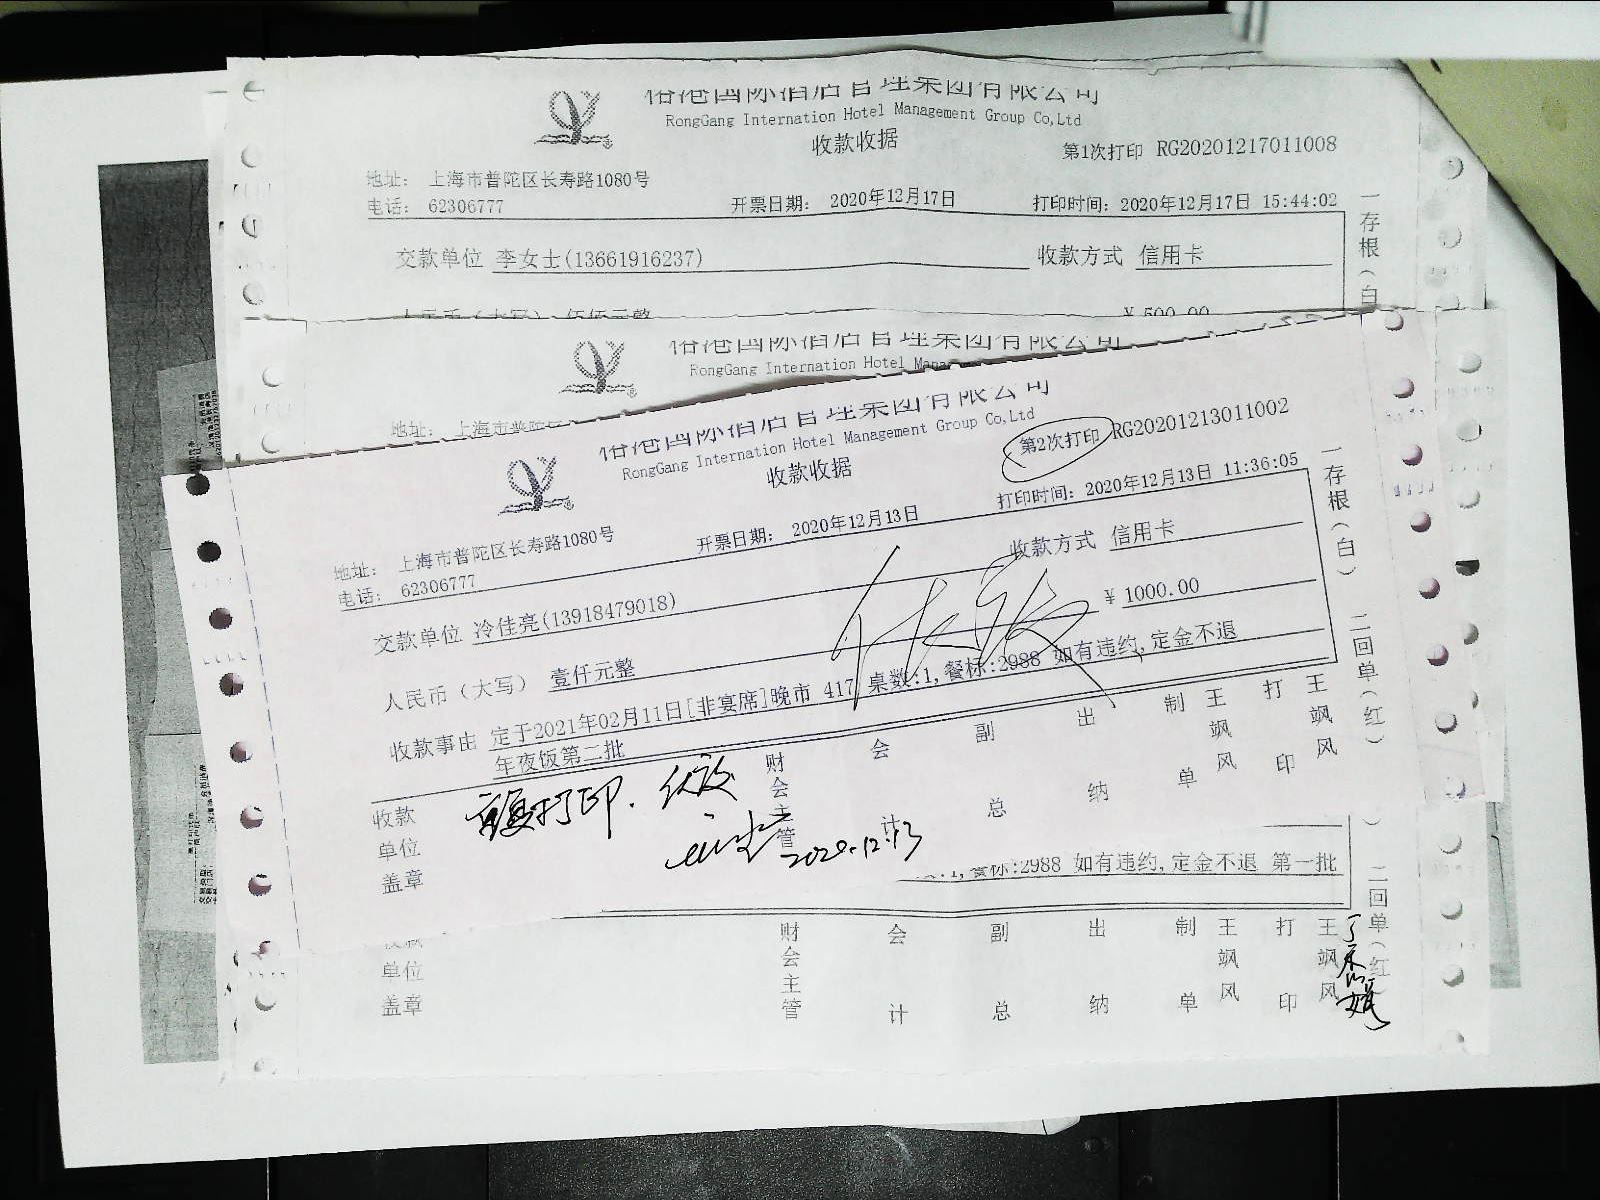 国际酒店管理集团有限公司
RongGang Internation Hotel Management Group Co,Ltd
收款收据
第1次打印 RG20201217011008
地址： 上海市普陀区长寿路1080号
电话： 62306777
开票日期： 2020年12月17日
打印时间：2020年12月17日 15:44:02
交款单位 李女士(13661916237)
收款方式 信用卡
人民币（大写） 伍佰元整
¥ 500.00
一存根（白
国际酒店管理集团有限公司
RongGang Internation Hotel Mana
地址： 上海市普陀区
国际酒店管理集团有限公司
RongGang Internation Hotel Management Group Co,Ltd
收款收据
第2次打印 RG20201213011002
地址： 上海市普陀区长寿路1080号
电话： 62306777
开票日期： 2020年12月13日
打印时间：2020年12月13日 11:36:05
交款单位 冷佳亮(13918479018)
收款方式 信用卡
人民币（大写） 壹仟元整
¥ 1000.00
收款事由 定于2021年02月11日[非宴席]晚市 417 桌数:1,餐标:2988 如有违约,定金不退
年夜饭第二批
作废
收款单位盖章
财会主管
会计
副总
出纳
制单
王飒风
打印
王飒风
一存根（白） 二回单（红）
重复打印. 作废
2020.12.13
:1,餐标:2988 如有违约,定金不退 第一批
收款单位盖章
财会主管
会计
副总
出纳
制单
王飒风
打印
王飒风
二回单（红